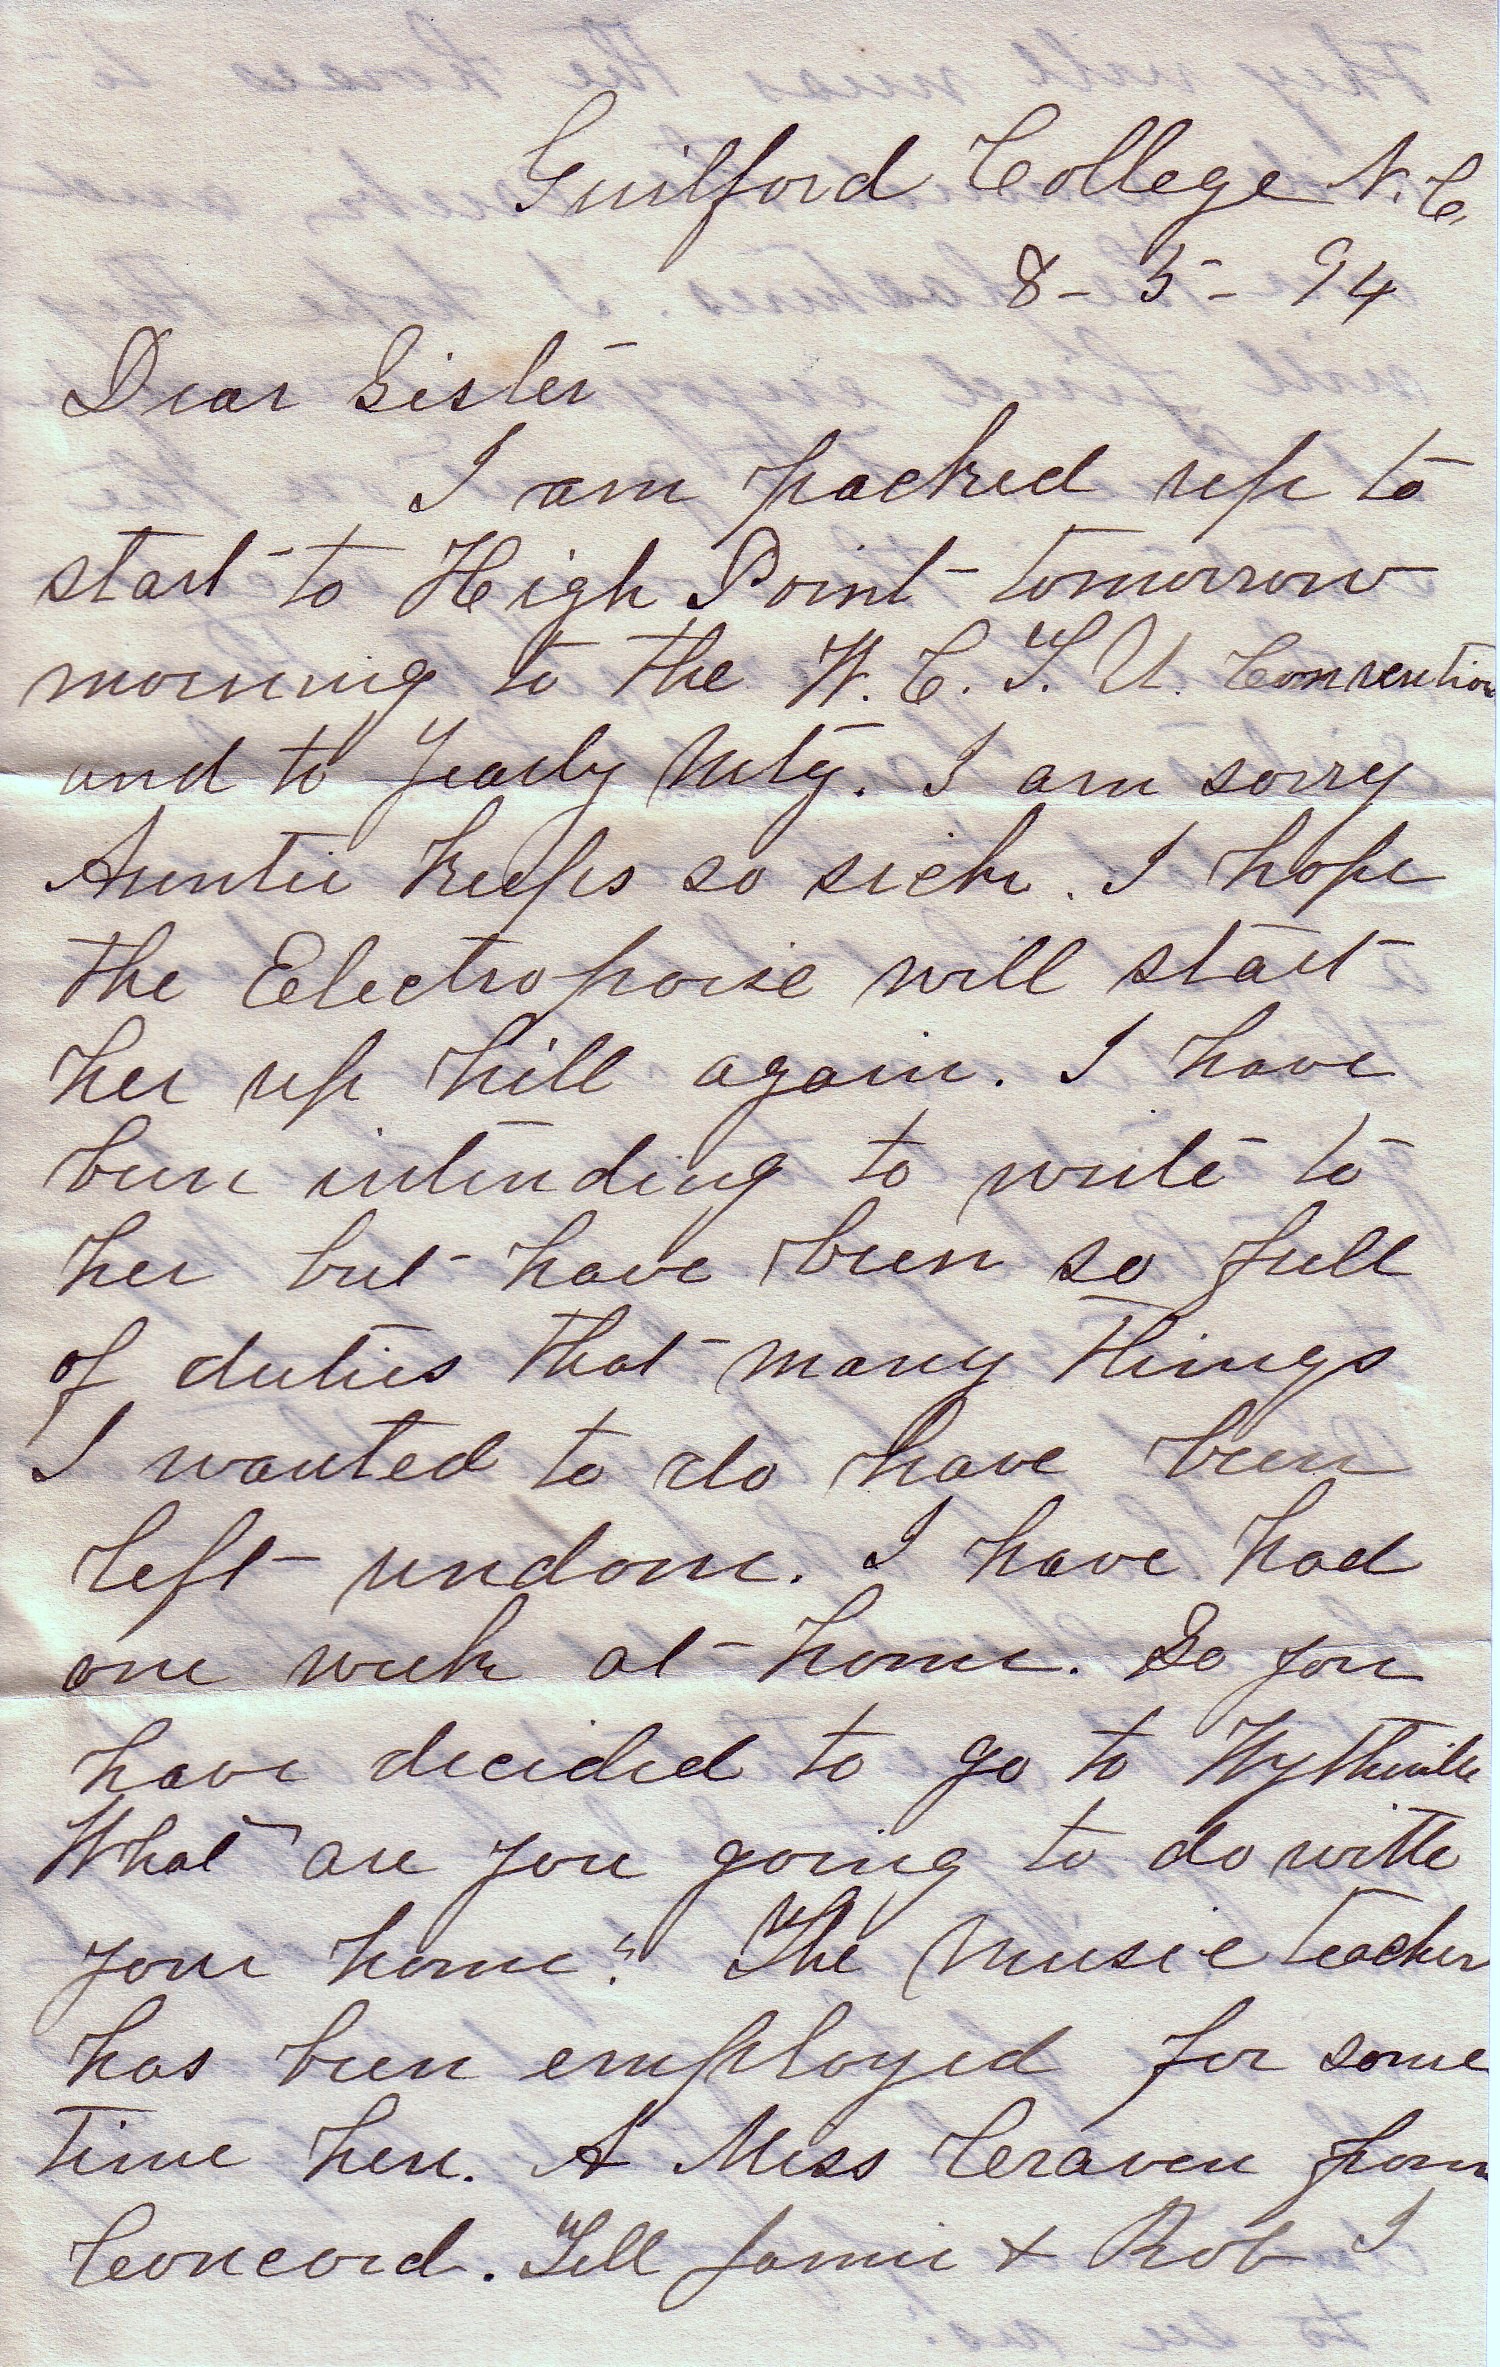 Guilford College N. C.
8 - 5 - 94
Dear Sister
I am packed up to
start to High Point tomorrow
morning to the W. C. T. U. Convention
and to Yearly Mtg. I am sorry
Auntie keeps so sick. I hope
the Electropoise will start
her up hill again. I have
been intending to write to
her but have been so full
of duties that many things
I wanted to do have been
left undone. I have had
one week at home. So you
have decided to go to Wytheville
What are you going to do with
your home? The Music teacher
has been employed for some
time here. A Miss Craven from
Concord. Tell Jamie & Rob I